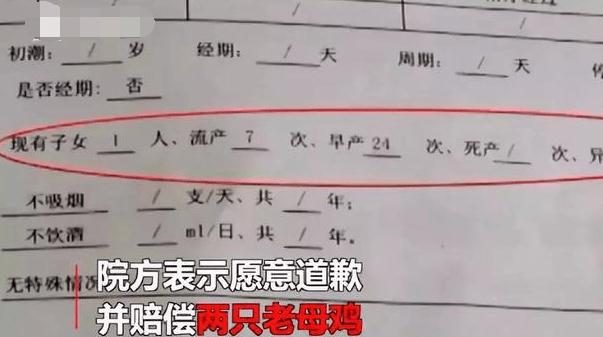 / /
初潮: / 岁 经期: / 天 周期: / 天
是否经期: 否
现有子女 1 人、流产 7 次、早产 24 次、死产 / 次、异
不吸烟 / 支/天、共 / 年;
不饮酒 / ml/日、共 / 年。
无特殊情况
院方表示愿意道歉
并赔偿两只老母鸡